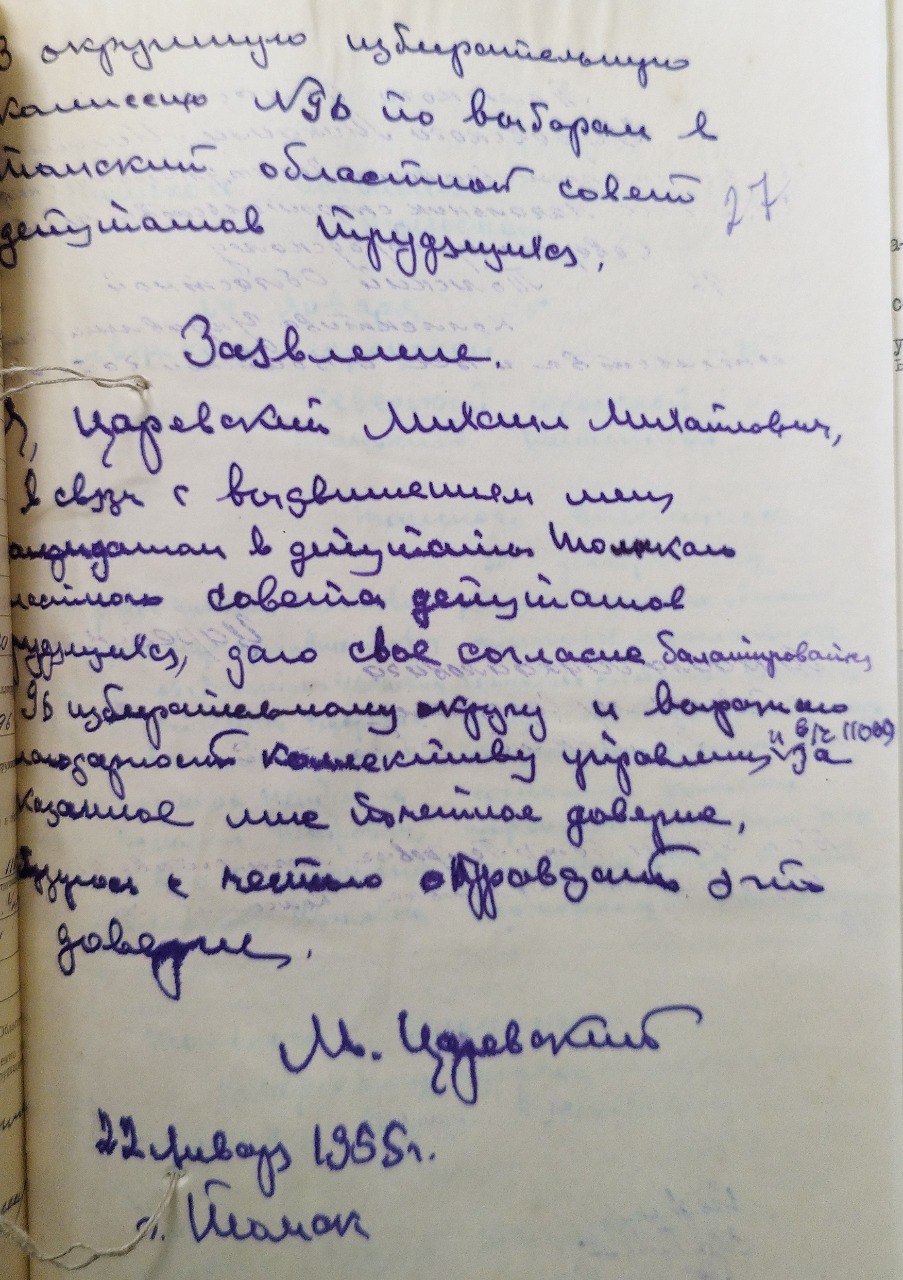 В окружную избирательную
комиссию №96 по выборам в
томский областной совет
депутатов трудящихся.
27
Заявление.
Я, Царевский Михаил Михайлович,
в связи с выдвижением меня
андидатом в депутаты Томского
ластного совета депутатов
рудящихся, даю свое согласие баллатироваться
96 избирательному округу и выражаю
и в/ч 11009
лагодарность коллективу управления за
казанное мне почетное доверие,
бязуюсь с честью оправдать это
доверие.
М. Царевский
22 Января 1955г.
г. Томск